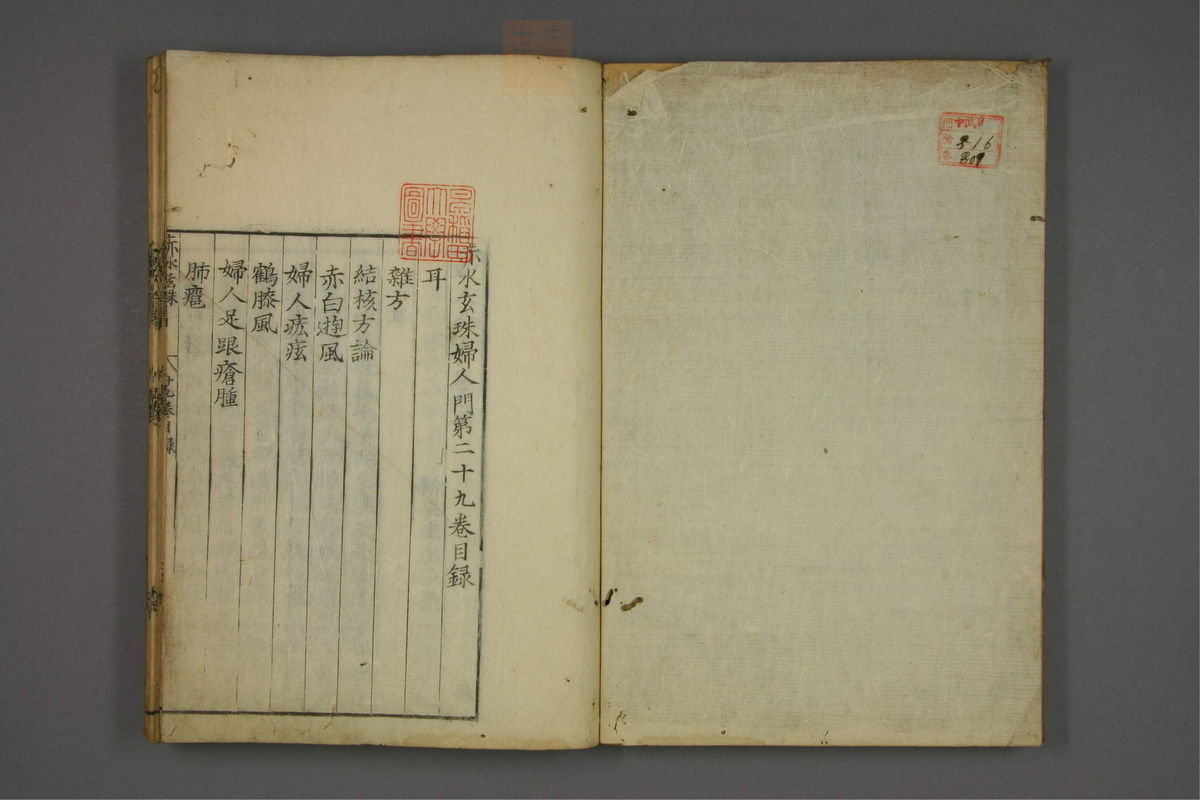 赤水玄珠婦人門第二十九卷目録
耳
雜方
結核方論
赤白遊風
婦人疣痃
鶴膝風
婦人足跟瘡腫
肺癰
赤水玄珠
十九卷目録
早稻田大學圖書